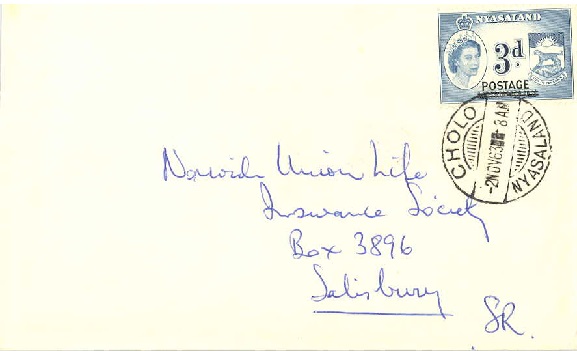 NYASALAND
3d
POSTAGE
CHOLO
-2NOV63 -8AM
NYASALAND
Norwich Union Life
Insurance Society
Box 3896
Salisbury
SR.